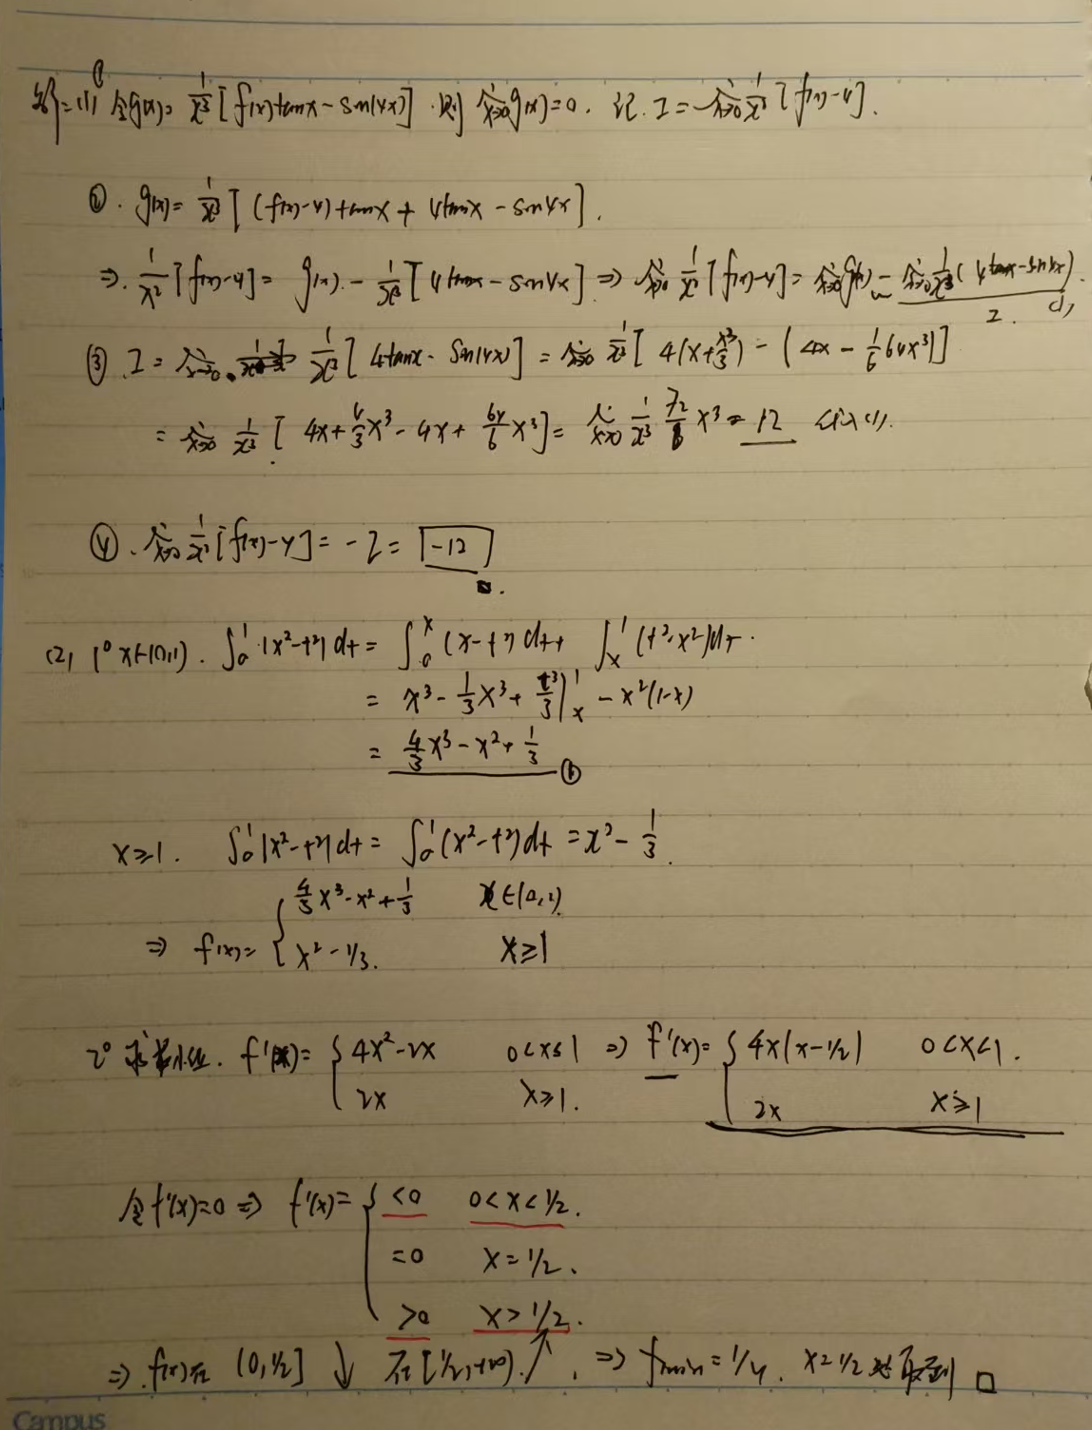 解=(1) ① 令g(x)= 1/x³ [f(x)tanx - sin(4x)] . 则 lim x→0 g(x)=0. 记. I = lim x→0 1/x² [f(x)-4].
②. g(x)= 1/x³ [(f(x)-4)tanx + 4tanx - sin4x].
⇒. 1/x² [f(x)-4] = g(x) - 1/x³ [4tanx - sin4x] ⇒ lim x→0 1/x² [f(x)-4] = lim x→0 g(x) - lim x→0 1/x³ (4tanx - sin4x).
I. (1)
③ . I = lim x→0 1/x³ [4tanx - Sin(4x)] = lim x→0 1/x³ [4(x+x³/3) - (4x - 1/6 64x³)]
= lim x→0 1/x³ [4x + 4/3 x³ - 4x + 64/6 x³] = lim x→0 1/x³ 72/6 x³ = 12 代入(1).
④. lim x→0 1/x² [f(x)-4] = -I = -12
(2) 1° x∈(0,1). ∫₀¹ |x²-t²| dt = ∫₀ˣ (x-t²) dt + ∫ₓ¹ (t²-x²) dt.
= x³ - 1/3 x³ + t³/3 |ₓ¹ - x²(1-x)
= 4/3 x³ - x² + 1/3 ①
x≥1. ∫₀¹ |x²-t²| dt = ∫₀¹ (x²-t²) dt = x² - 1/3.
4/3 x³ - x² + 1/3 x∈(0,1)
⇒ f(x) = { x² - 1/3. x≥1
2° 求最小值. f'(x) = { 4x²-2x 0<x≤1 ⇒ f'(x) = { 4x(x-1/2) 0<x<1.
2x x≥1. 2x x≥1
令f'(x)=0 ⇒ f'(x) = { <0 0<x<1/2.
=0 x=1/2.
>0 x>1/2.
⇒. f(x)在 (0,1/2] ↓ 在[1/2,+∞). ↗. ⇒ fmin = 1/4. x=1/2 处取到 □
Campus